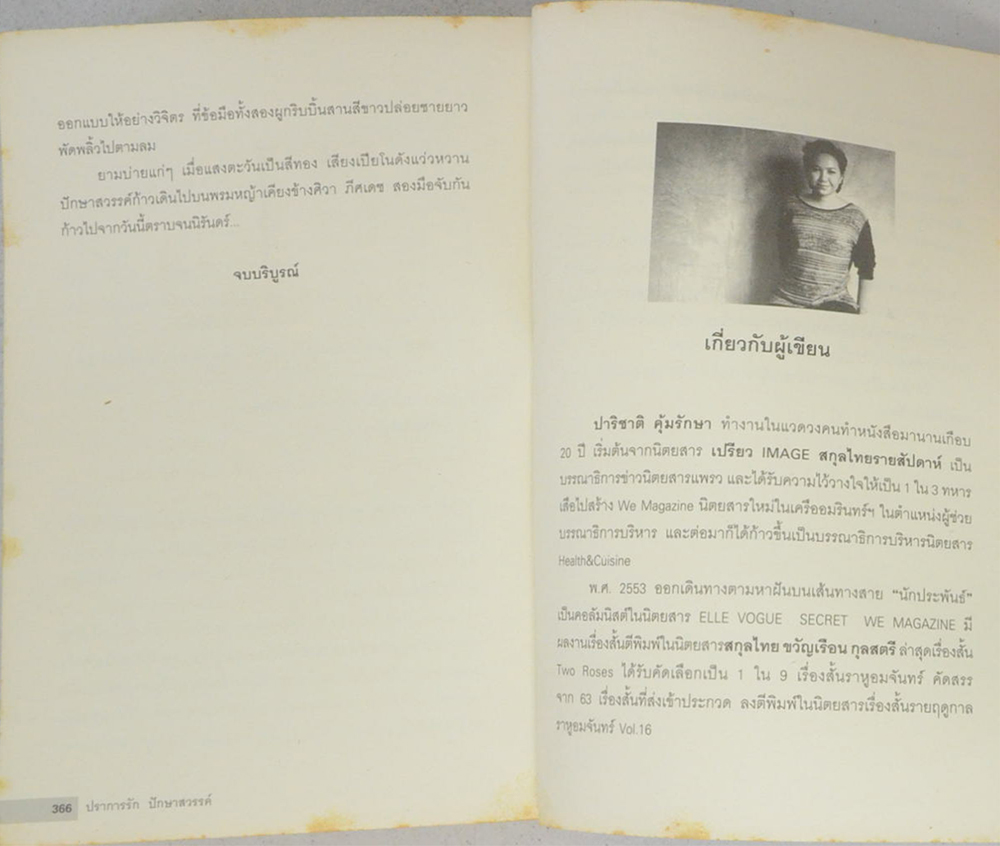 ออกแบบให้อย่างวิจิตร ที่ข้อมือทั้งสองผูกริบบิ้นสานสีขาวปล่อยชายยาว
พัดพลิ้วไปตามลม
ยามบ่ายแก่ๆ เมื่อแสงตะวันเป็นสีทอง เสียงเปียโนดังแว่วหวาน
ปักษาสวรรค์ก้าวเดินไปบนพรมหญ้าเคียงข้างศิวา ภีศเดช สองมือจับกัน
ก้าวไปจากวันนี้ตราบจนนิรันดร์...
จบบริบูรณ์
366 ปราการรัก ปักษาสวรรค์
เกี่ยวกับผู้เขียน
ปาริชาติ คุ้มรักษา ทำงานในแวดวงคนทำหนังสือมานานเกือบ
20 ปี เริ่มต้นจากนิตยสาร เปรียว IMAGE สกุลไทยรายสัปดาห์ เป็น
บรรณาธิการข่าวนิตยสารแพรว และได้รับความไว้วางใจให้เป็น 1 ใน 3 ทหาร
เสือไปสร้าง We Magazine นิตยสารใหม่ในเครืออมรินทร์ฯ ในตำแหน่งผู้ช่วย
บรรณาธิการบริหาร และต่อมาก็ได้ก้าวขึ้นเป็นบรรณาธิการบริหารนิตยสาร
Health&Cuisine
พ.ศ. 2553 ออกเดินทางตามหาฝันบนเส้นทางสาย "นักประพันธ์"
เป็นคอลัมนิสต์ในนิตยสาร ELLE VOGUE SECRET WE MAGAZINE มี
ผลงานเรื่องสั้นตีพิมพ์ในนิตยสารสกุลไทย ขวัญเรือน กุลสตรี ล่าสุดเรื่องสั้น
Two Roses ได้รับคัดเลือกเป็น 1 ใน 9 เรื่องสั้นราหูอมจันทร์ คัดสรร
จาก 63 เรื่องสั้นที่ส่งเข้าประกวด ลงตีพิมพ์ในนิตยสารเรื่องสั้นรายฤดูกาล
ราหูอมจันทร์ Vol.16